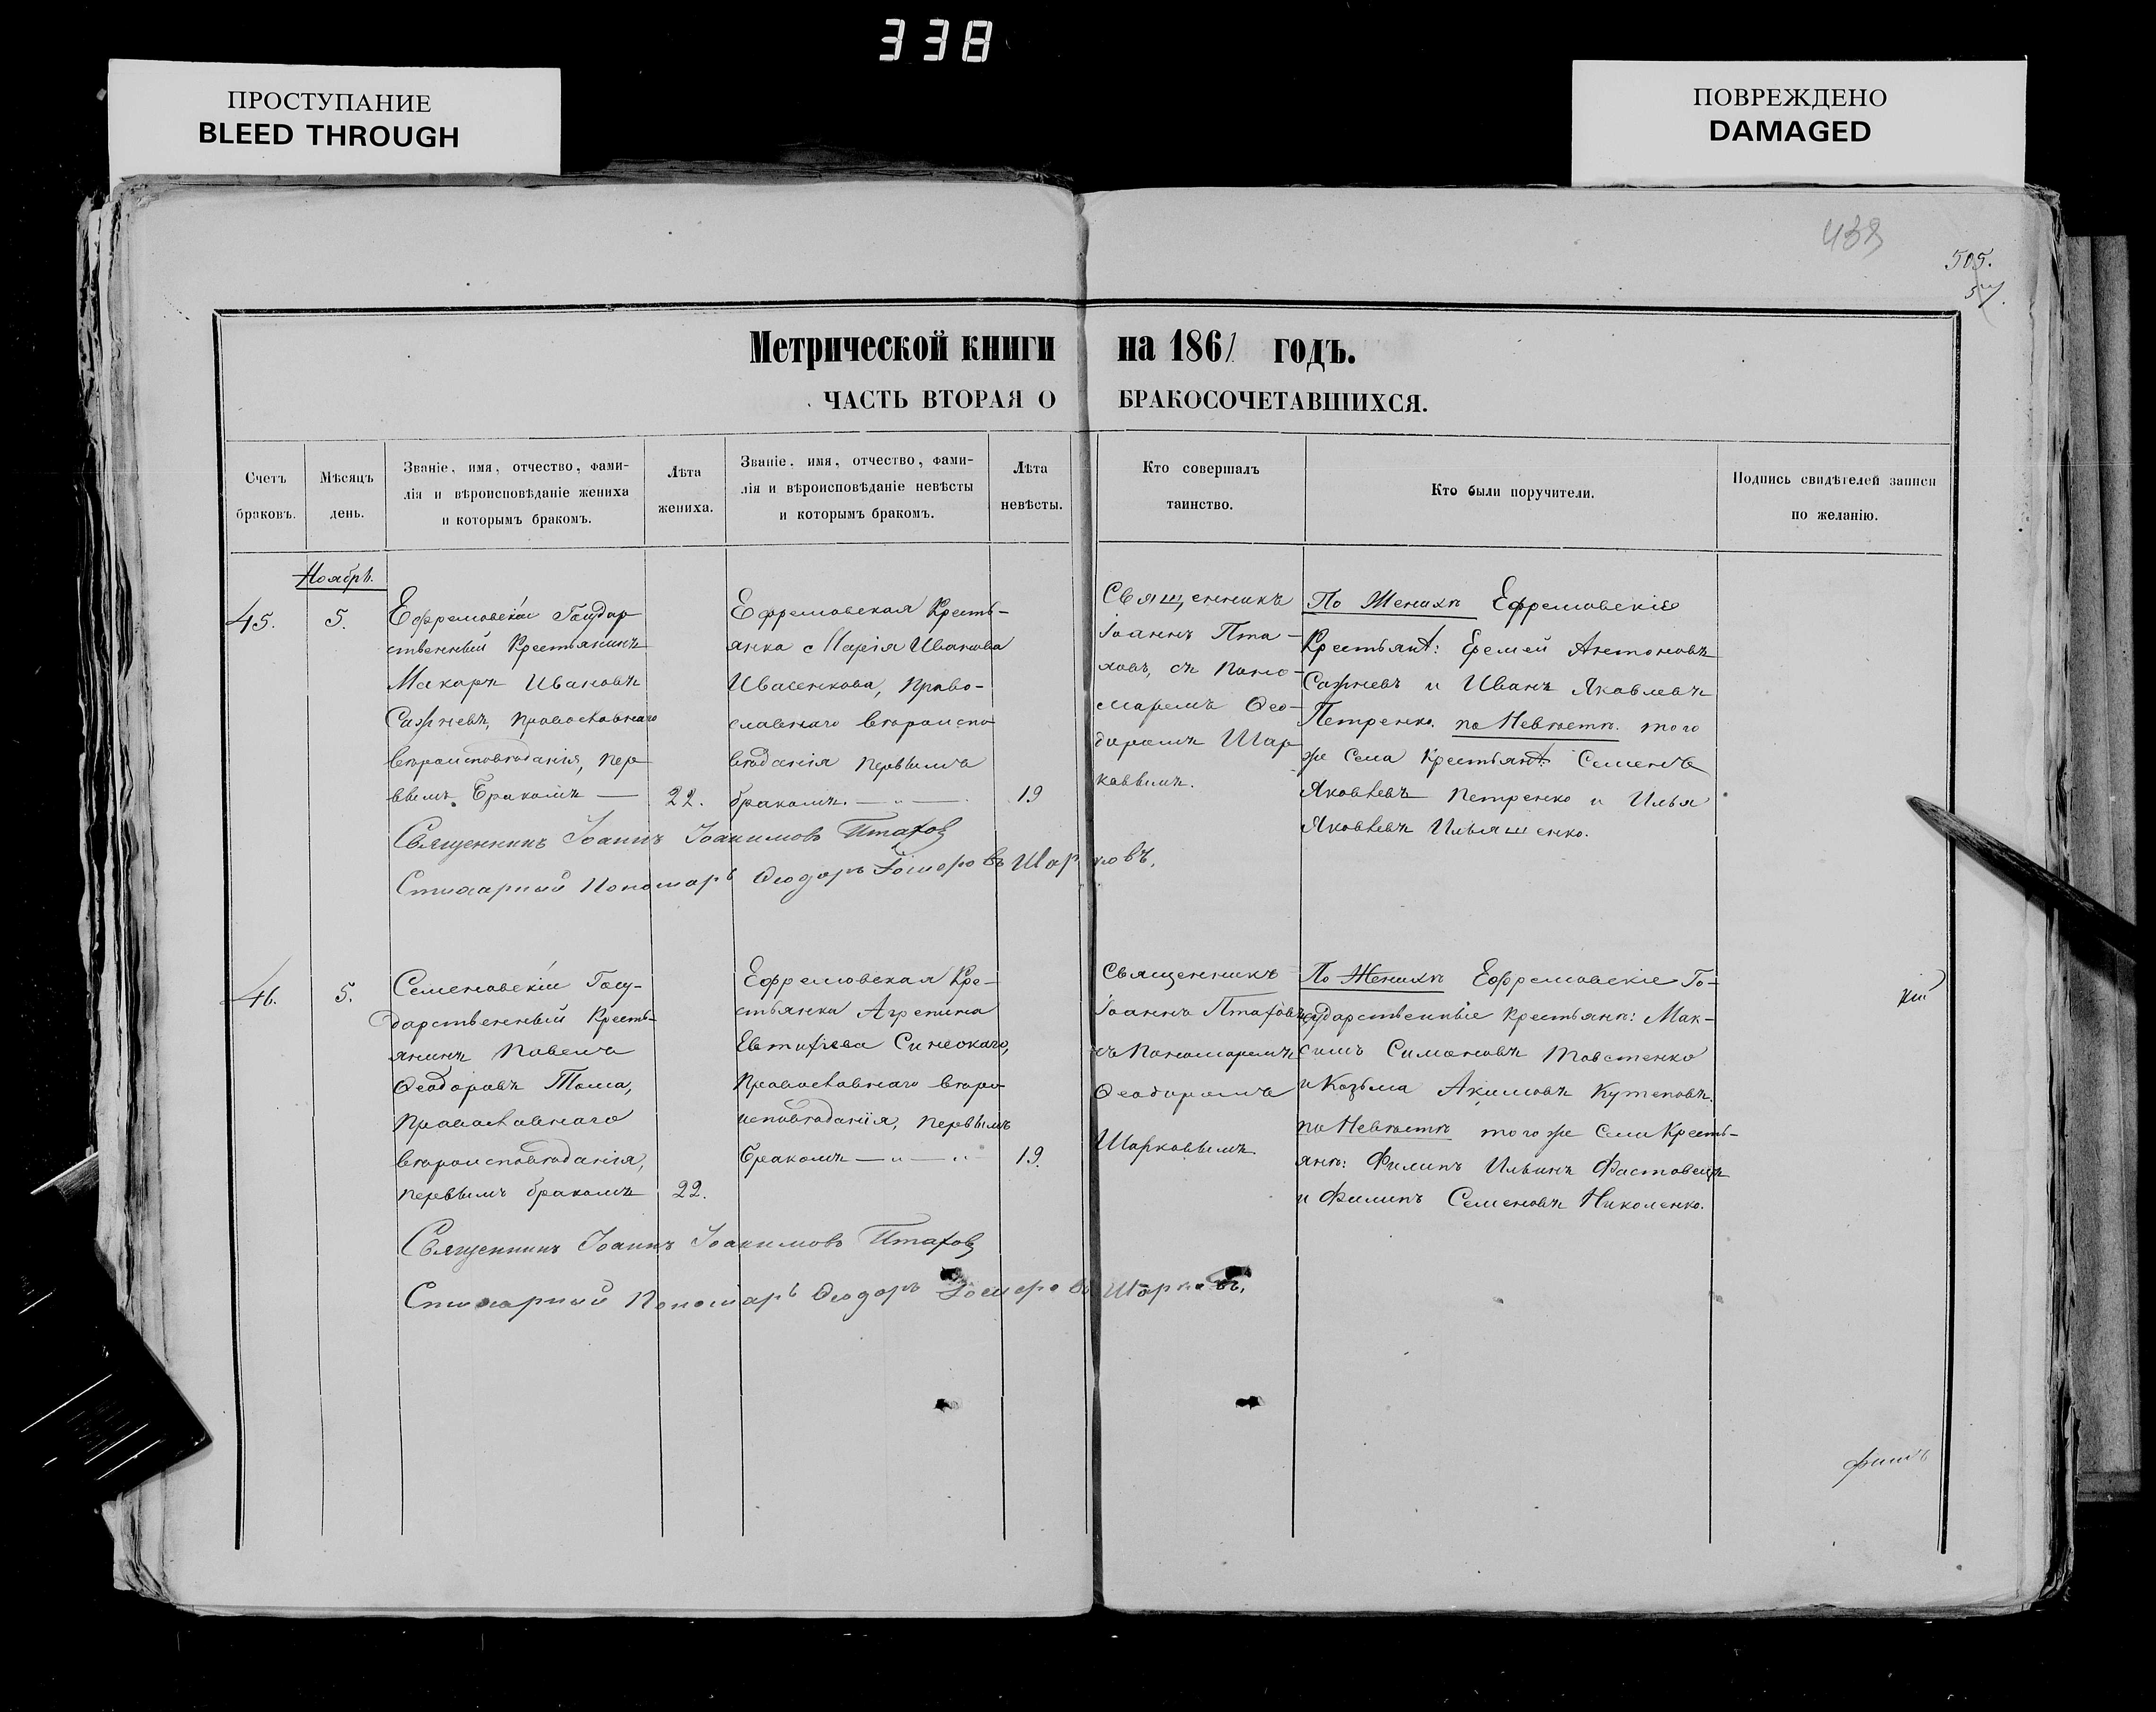 338
ПРОСТУПАНИЕ
BLEED THROUGH
ПОВРЕЖДЕНО
DAMAGED
505.
57.
Метрической книги на 1861 годъ.
ЧАСТЬ ВТОРАЯ О БРАКОСОЧЕТАВШИХСЯ.
Счетъ
браковъ.
Мѣсяцъ
день.
Званіе, имя, отчество, фами-
лія и вѣроисповѣданіе жениха
и которымъ бракомъ.
Лѣта
жениха.
Званіе, имя, отчество, фами-
лія и вѣроисповѣданіе невѣсты
и которымъ бракомъ.
Лѣта
невѣсты.
Кто совершалъ
таинство.
Кто были поручители.
Подпись свидѣтелей записи
по желанію.
Ноябрь.
45.
5.
Ефремовскій Государ
ственный Крестьянинъ
Макаръ Ивановъ
Сажневъ, Православнаго
вѣроисповѣданія, пер
ввымъ Бракомъ —
22.
Ефремовская Кресть-
янка Марія Иванова
Ивасенкова, Право-
славнаго вѣроиспо
вѣданія первымъ
бракомъ.
19
Священникъ
Іоаннъ Пта-
ховъ, съ Поно-
маремъ Ѳео-
доромъ Шар
ковымъ.
По Женихѣ Ефремовскіе
Крестьянѣ: Еремей Антоновъ
Сажневъ и Иванъ Яковлевъ
Петренко. по Невѣстѣ. того
же Села Крестьянѣ: Семенъ
Яковлевъ Петренко и Илья
Яковлевъ Ильяшенко.
Священникъ Іоаннъ Іоакимовъ Птаховъ
Стихарный Пономарь Ѳеодоръ Шарковъ.
46.
5.
Семеновскій Госу-
дарственный Кресть-
янинъ Павелъ
Ѳеодоровъ Тома,
Православнаго
вѣроисповѣданія,
первымъ бракомъ
22.
Ефремовская Кре-
стьянка Агрепина
Евтихіева Синеокаго,
Православнаго вѣро-
исповѣданія, первымъ
Бракомъ
19.
Священникъ
Іоаннъ Птаховъ
съ Пономаремъ
Ѳеодоромъ
Шарковымъ.
По Женихѣ Ефремовскіе Го-
сударственные крестьянѣ: Мак-
симъ Симоновъ Товстенко
и Козьма Акимовъ Кутеповъ.
по Невѣстѣ того же Села Кресть-
янѣ: Филипъ Ильинъ Фастовецъ
и Филипъ Семеновъ Николенко.
Священникъ Іоаннъ Іоакимовъ Птаховъ
Стихарный Пономарь Ѳеодоръ Шарковъ.